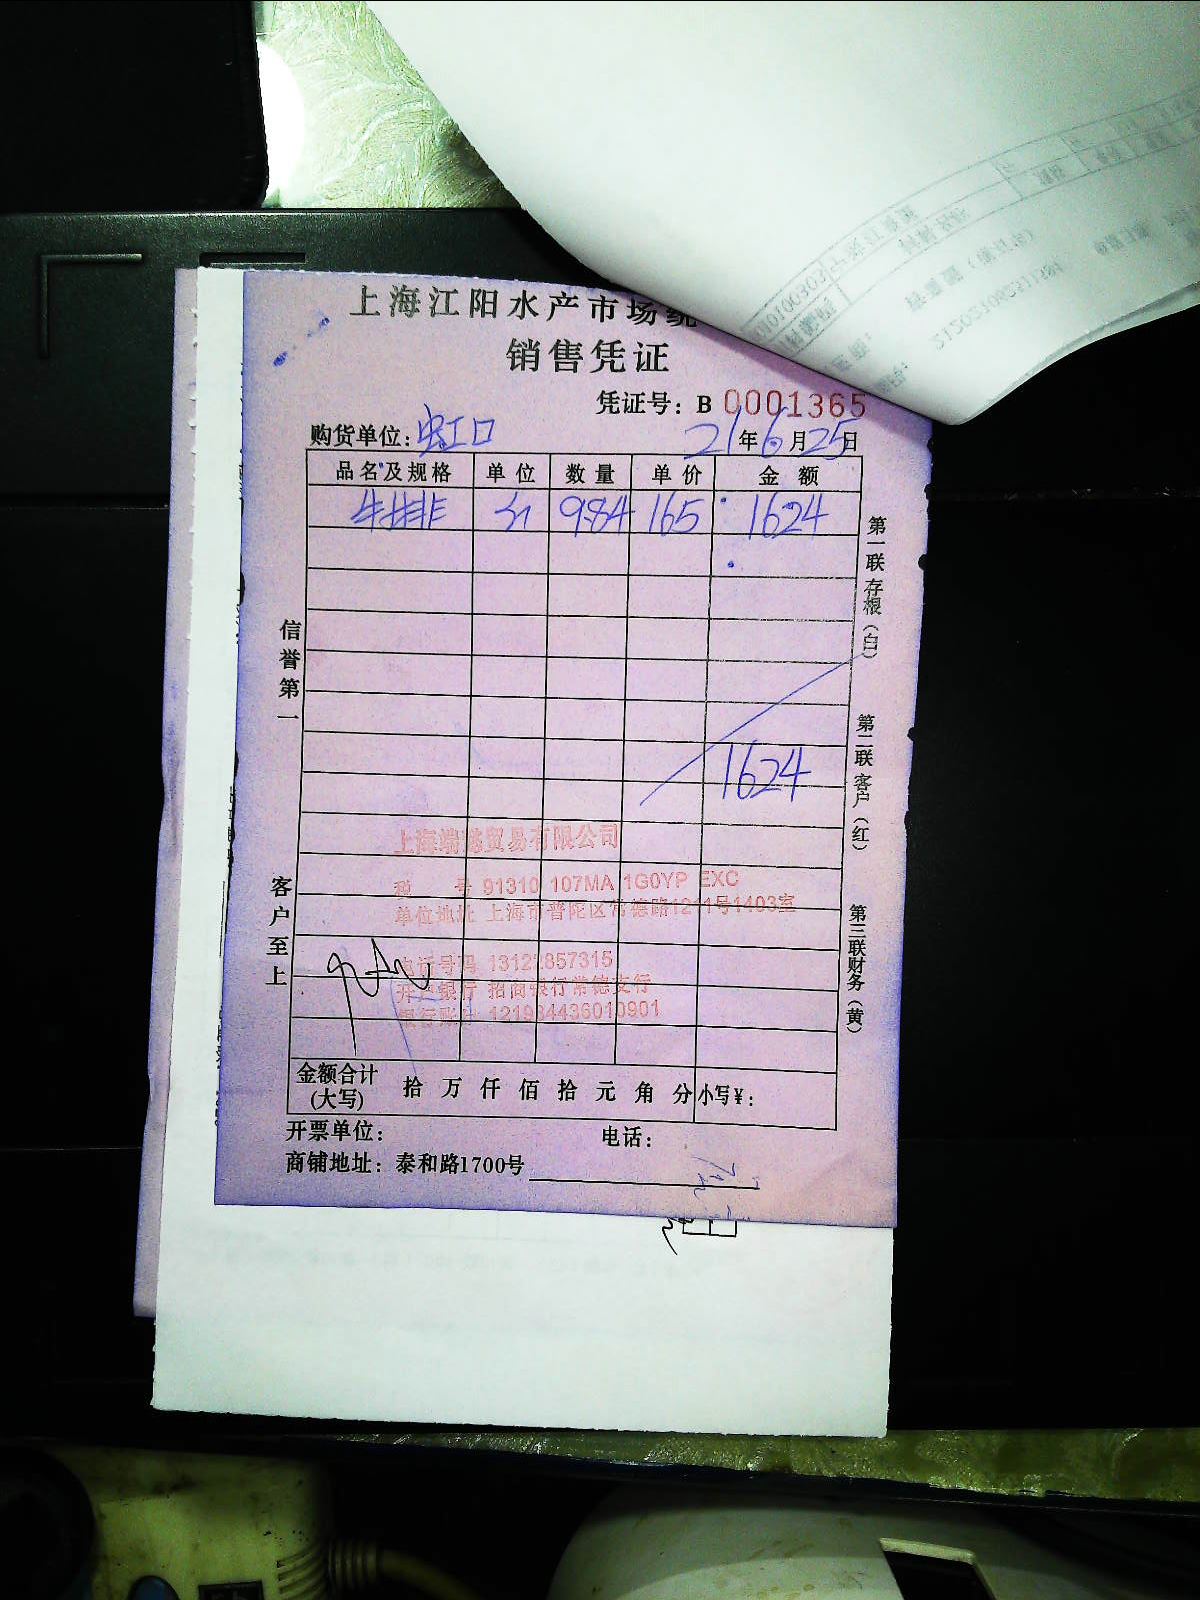 上海江阳水产市场统
销售凭证
凭证号：B 0001365
购货单位：虹口 21年6月25日
品名及规格 单位 数量 单价 金额
牛排 斤 9.84 165 1624
1624
信誉第一
客户至上
第一联存根（白）
第二联客户（红）
第三联财务（黄）
上海端 贸易有限公司
税 号 91310 107MA 1G0YP EXC
单位地址 上海市普陀区常德路1211号1403室
电话号码 13122857315
开户银行 招商银行常德支行
银行账号 121934436010901
金额合计(大写) 拾 万 仟 佰 拾 元 角 分 小写¥：
开票单位： 电话：
商铺地址：泰和路1700号